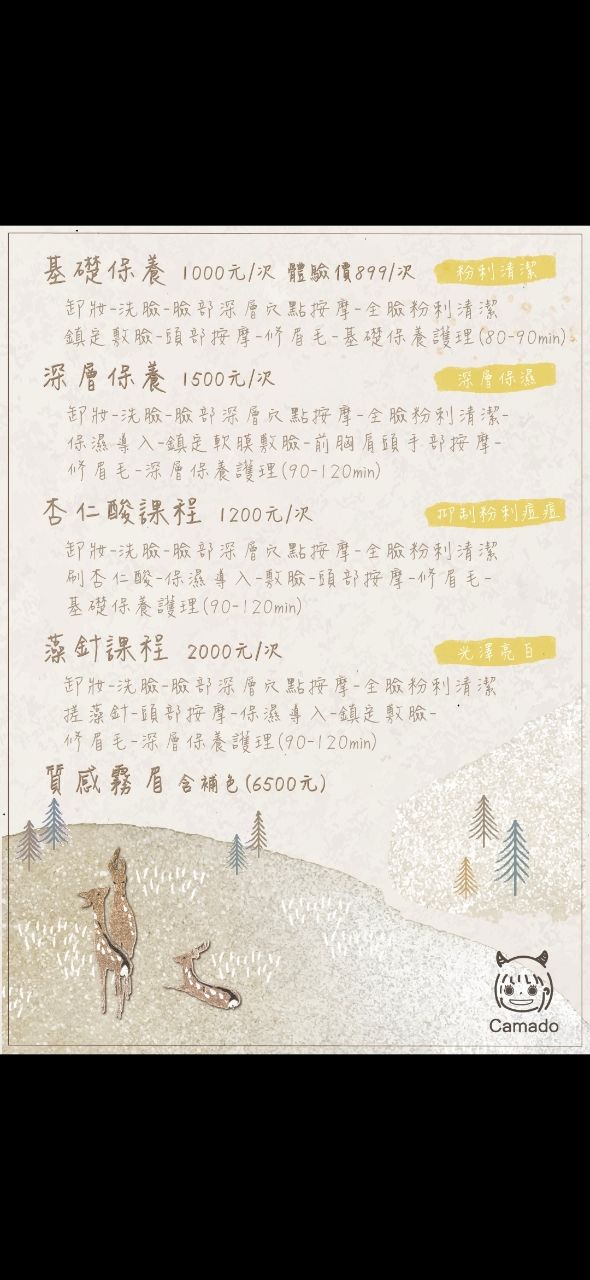 基礎保養 1000元/次 體驗價899/次 粉刺清潔
卸妝-洗臉-臉部深層穴點按摩-全臉粉刺清潔
鎮定敷臉-頭部按摩-修眉毛-基礎保養護理(80-90min)
深層保養 1500元/次 深層保濕
卸妝-洗臉-臉部深層穴點按摩-全臉粉刺清潔-
保濕導入-鎮定軟膜敷臉-前胸肩頭手部按摩-
修眉毛-深層保養護理(90-120min)
杏仁酸課程 1200元/次 抑制粉刺痘痘
卸妝-洗臉-臉部深層穴點按摩-全臉粉刺清潔
刷杏仁酸-保濕導入-敷臉-頭部按摩-修眉毛-
基礎保養護理(90-120min)
藻針課程 2000元/次 光澤亮白
卸妝-洗臉-臉部深層穴點按摩-全臉粉刺清潔
搓藻針-頭部按摩-保濕導入-鎮定敷臉-
修眉毛-深層保養護理(90-120min)
質感霧眉 含補色(6500元)
Camado